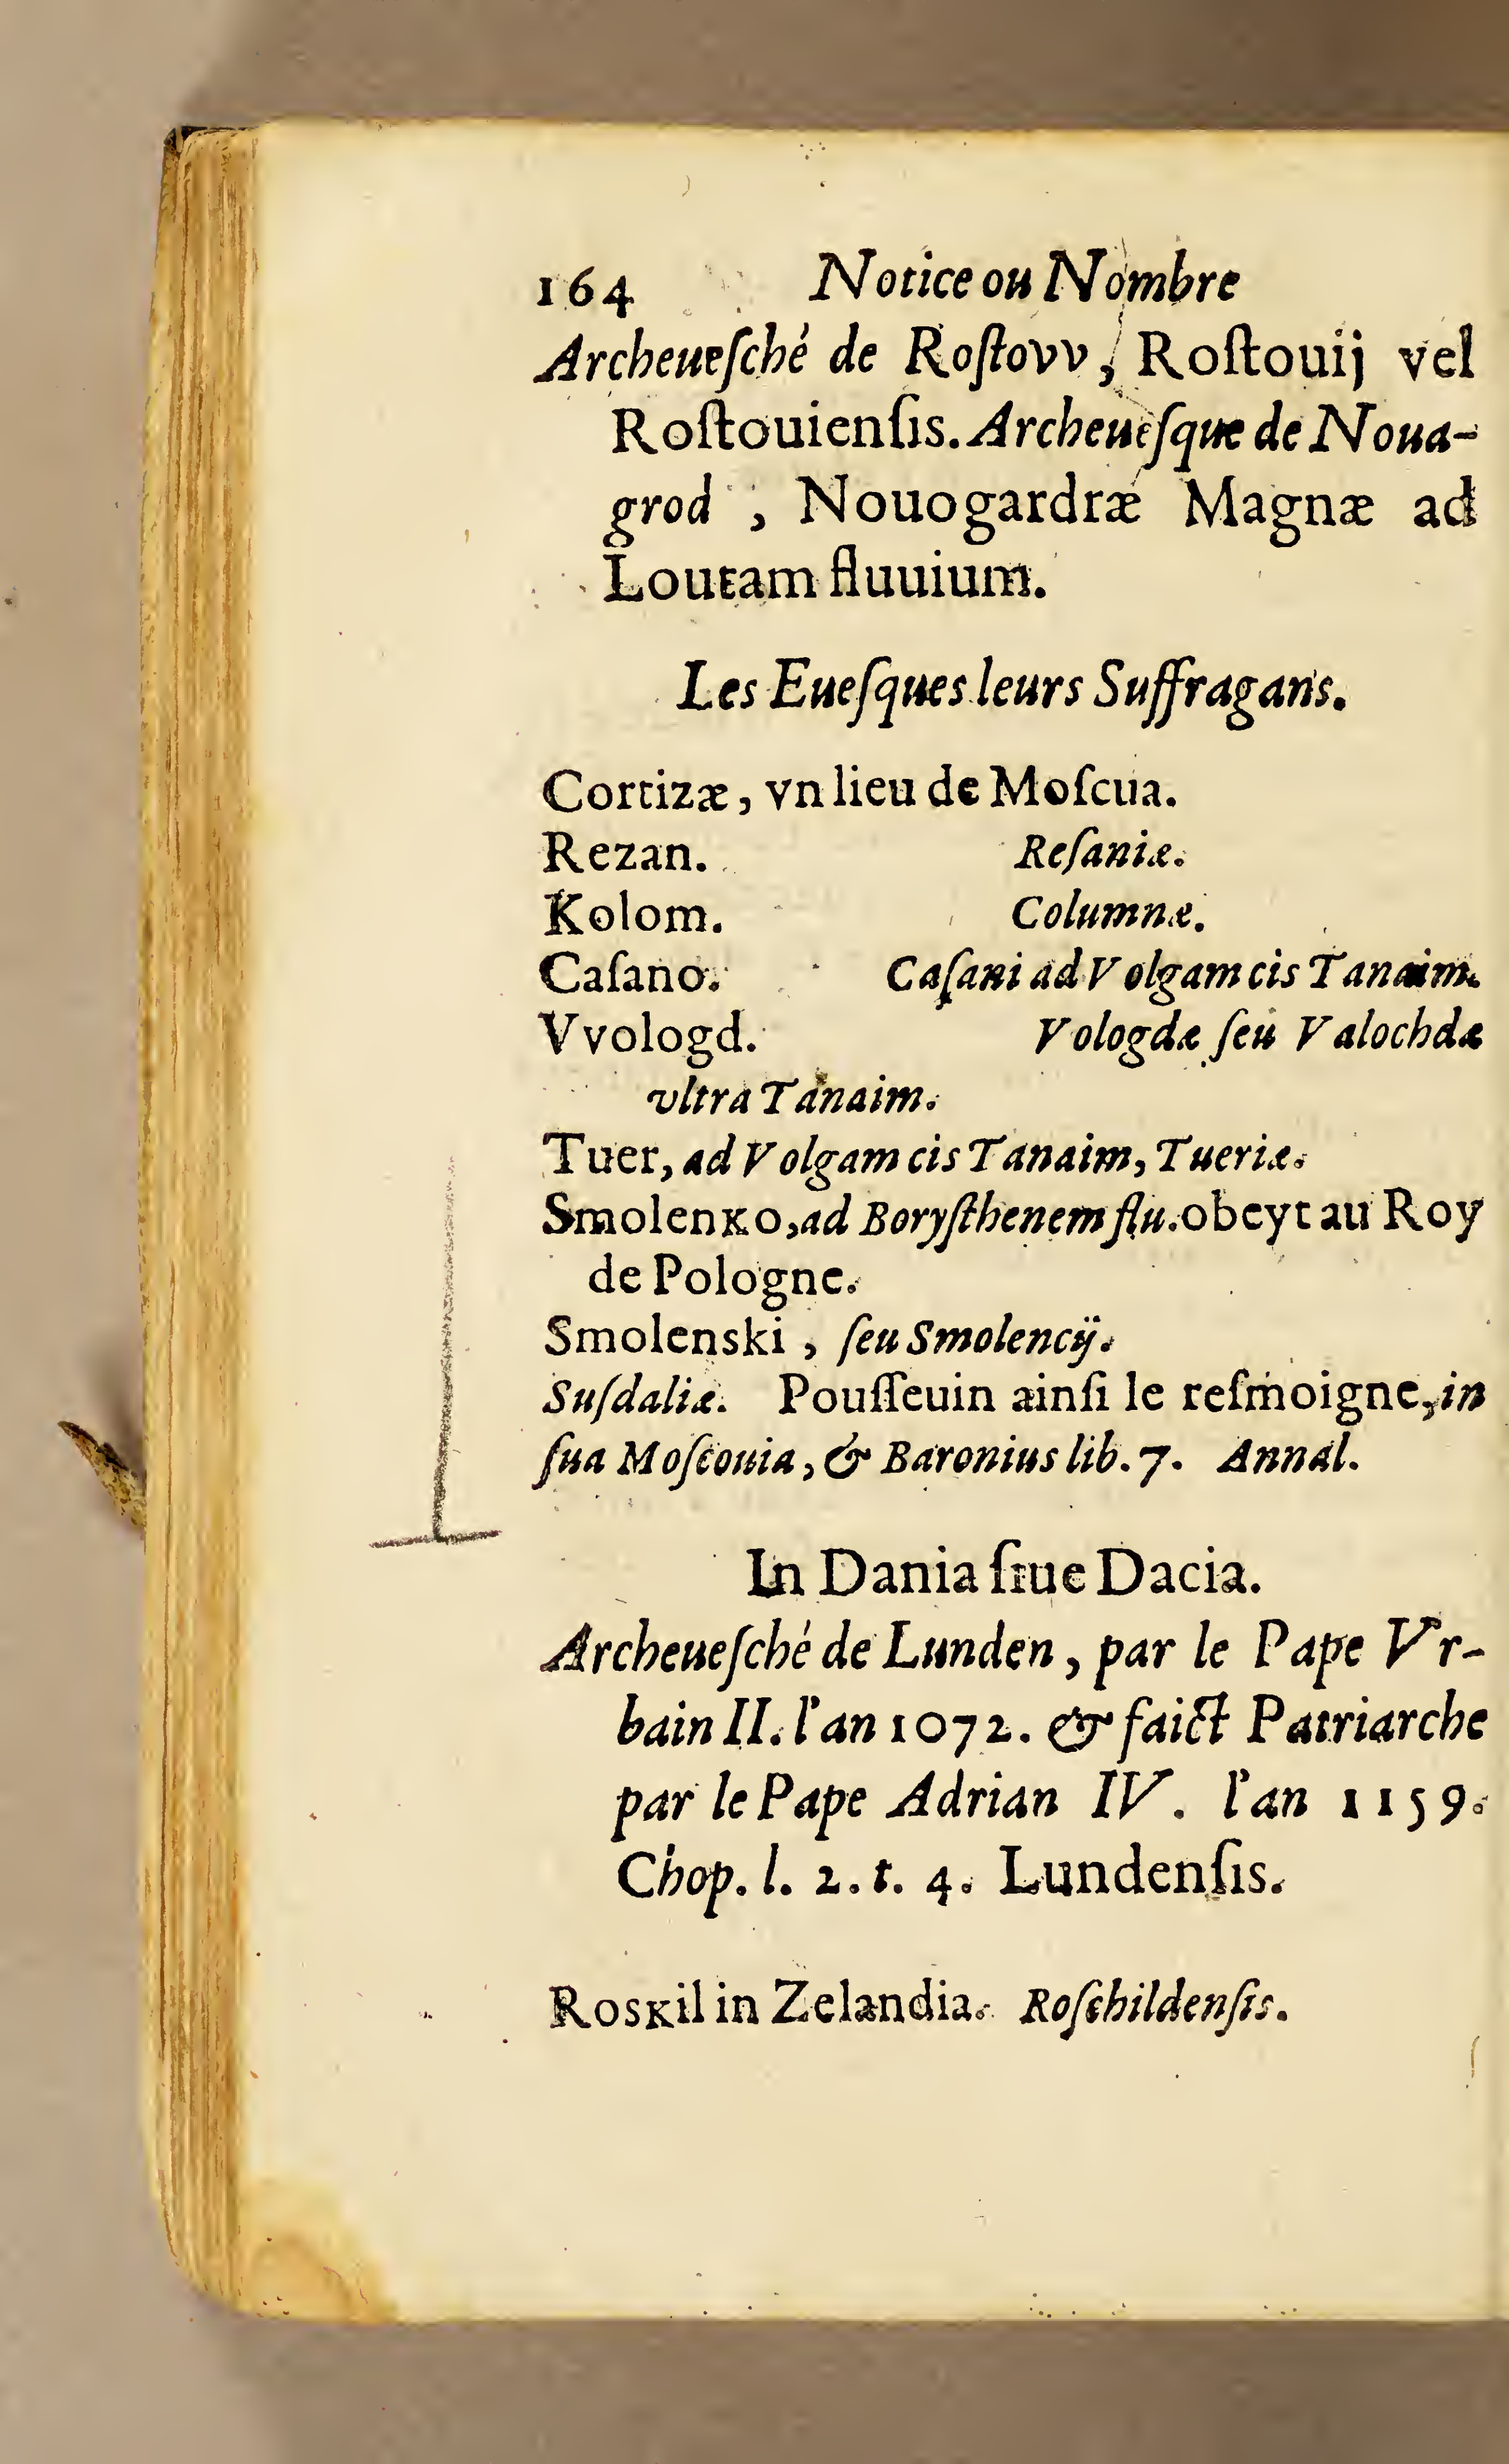 164 Notice ou Nombre
Archeueſché de Roſtovv, Roſtouij vel
Roſtouienſis. Archeueſque de Noua-
grod , Nouogardræ Magnæ ad
Loutam fluuium.
Les Eueſques leurs Suffragans.
Cortizæ, vn lieu de Moſcua.
Rezan. Reſaniæ.
Kolom. Columnæ.
Caſano. Caſani ad Volgam cis Tanaim.
Vvologd. Vologdæ ſeu Valochdæ
vltra Tanaim.
Tuer, ad Volgam cis Tanaim, Tueriæ.
Smolenκo, ad Boryſthenem flu. obeyt au Roy
de Pologne.
Smolenski , ſeu Smolencij.
Suſdaliæ. Pouſſeuin ainſi le reſmoigne, in
ſua Moſcouia, & Baronius lib. 7. Annal.
In Dania ſiue Dacia.
Archeueſché de Lunden, par le Pape Vr-
bain II. l'an 1072. & faict Patriarche
par le Pape Adrian IV. l'an 1159.
Chop. l. 2. t. 4. Lundenſis.
Rosκil in Zelandia. Roſchildenſis.